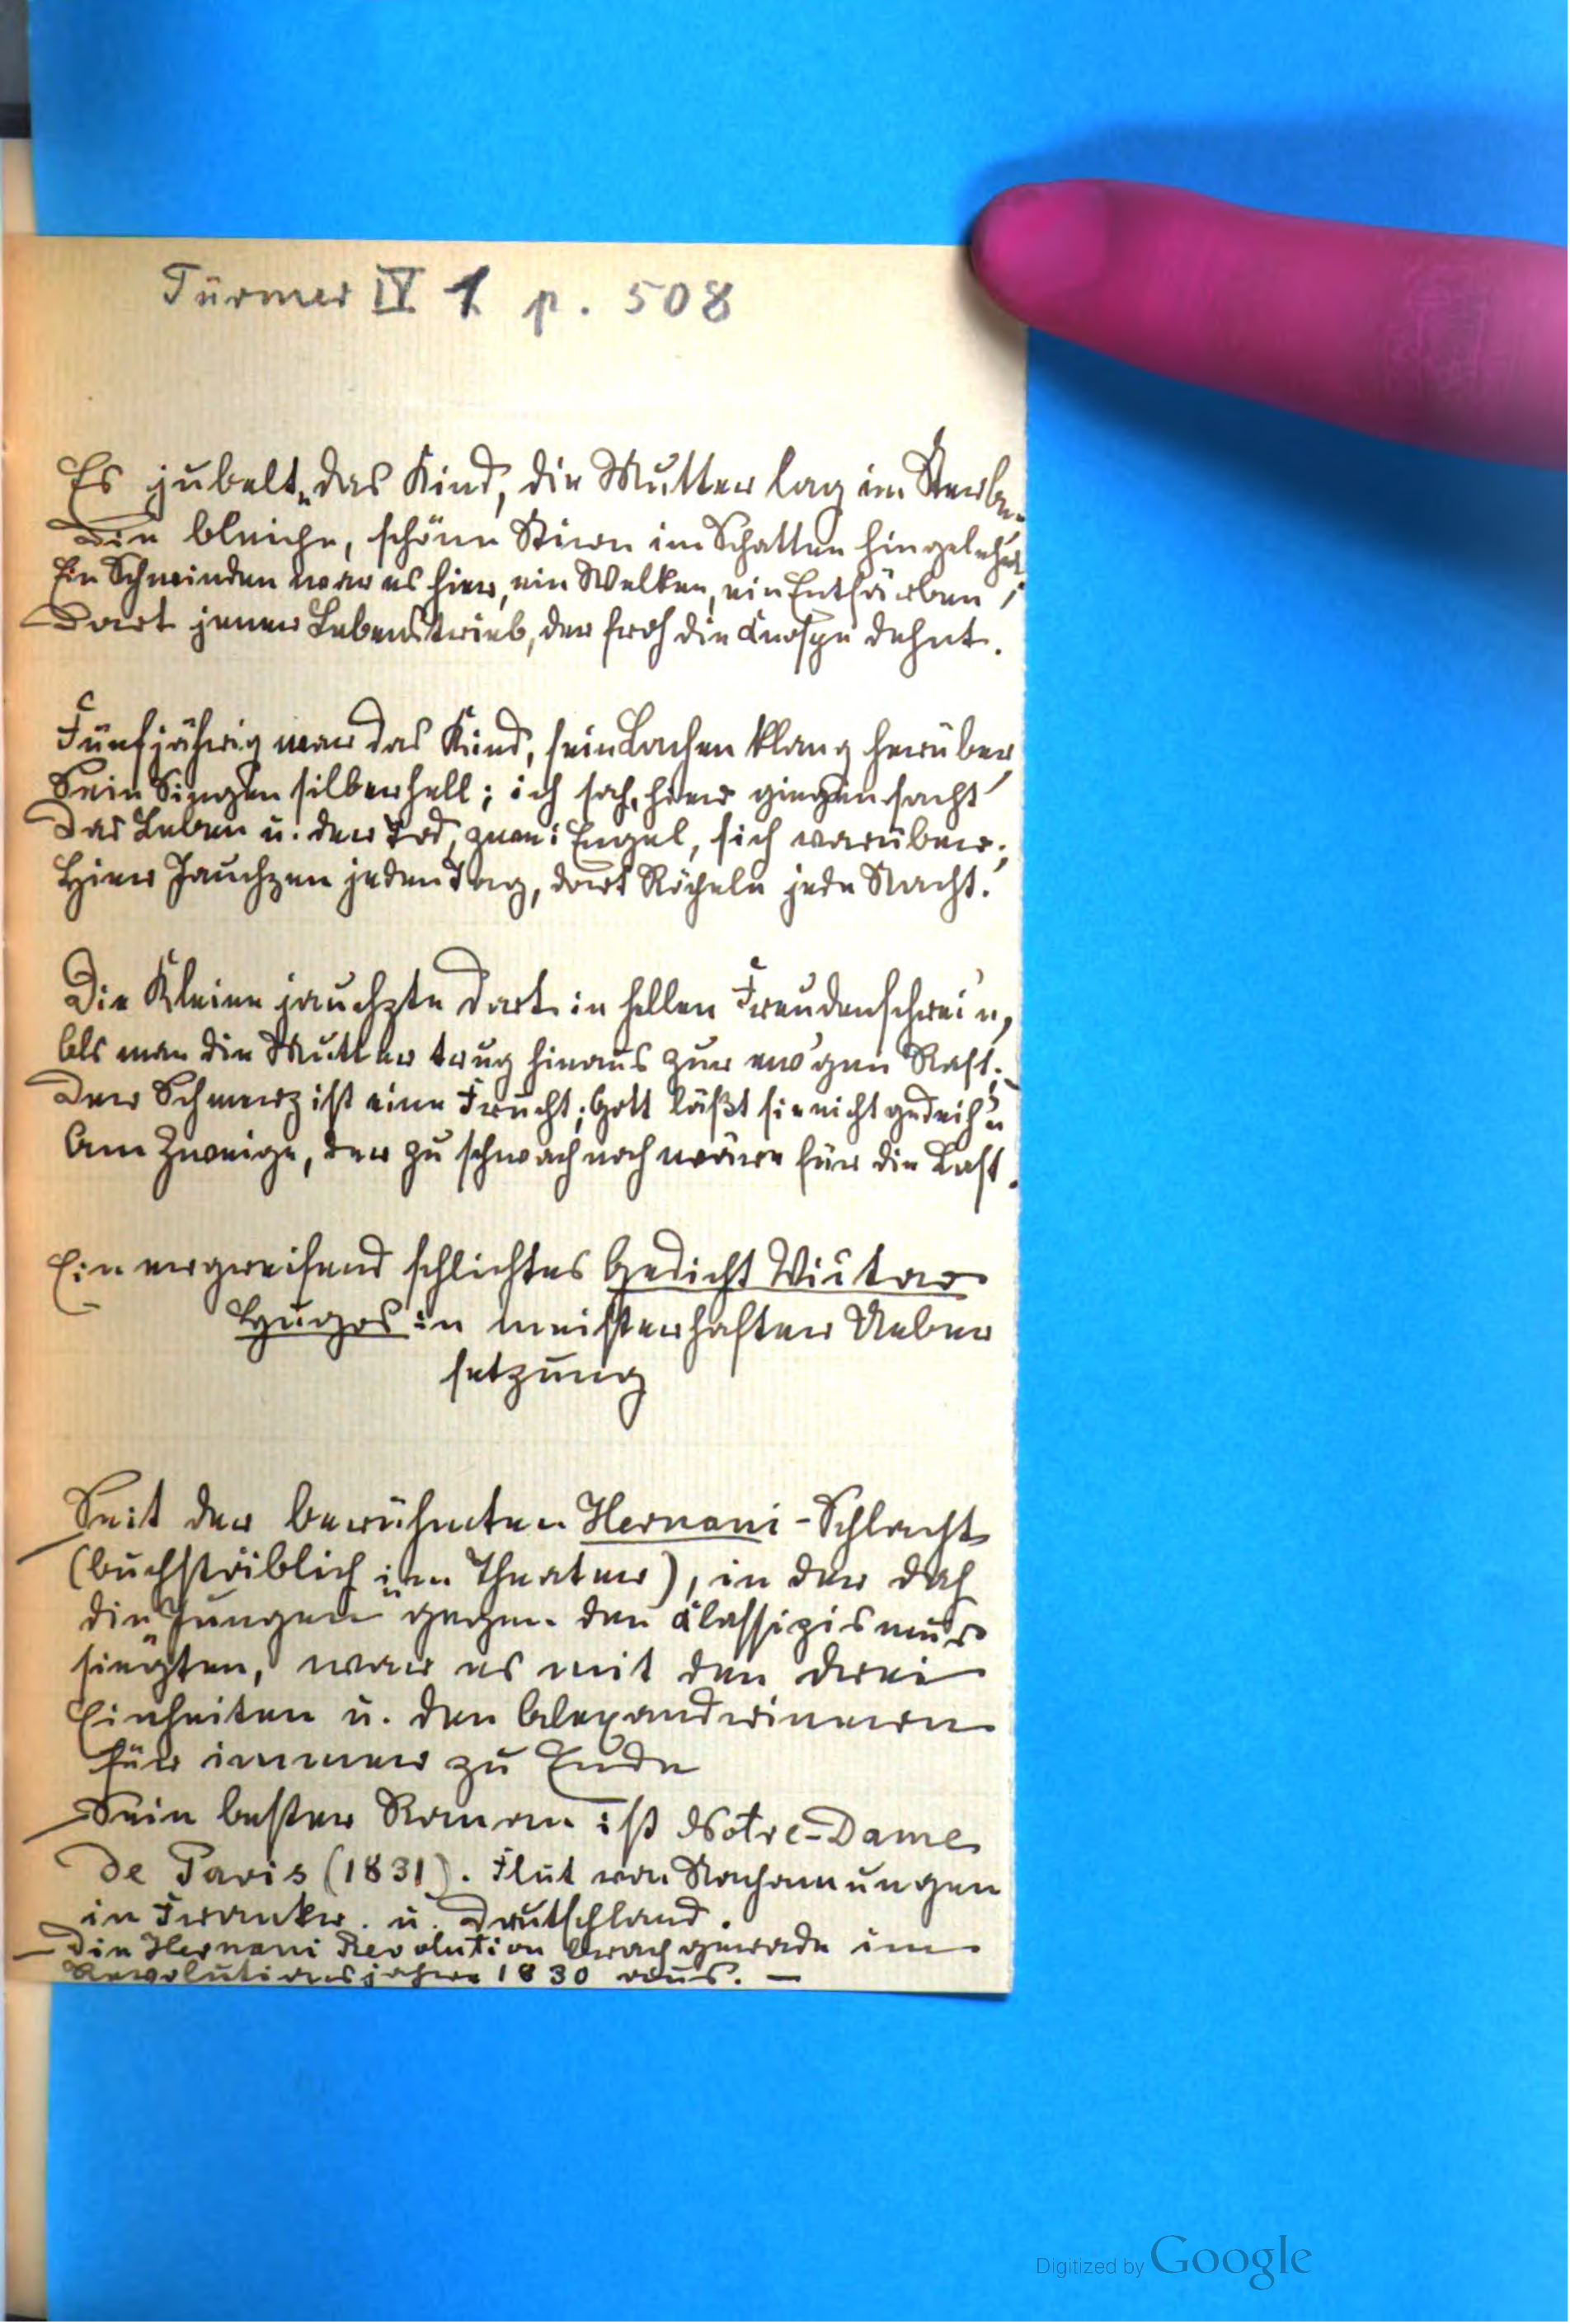 Türmer IV 1 p. 508
Es jubelt, das Kind, die Mutter lag im Sterben
Die bleiche, schöne Stirn im Schatten hingelehnt
Ein Schwinden war es hier, ein Welken, ein Entfärben;
Dort jener Lebenstrieb, der froh die Knospe dehnt.
Fünfjährig war das Kind, sein Lachen klang herüber,
Sein Singen silberhell; ich sah, hier gingen sacht
Das Leben u. der Tod, zwei Engel, sich vorüber;
Hier Jauchzen jeden Tag, dort Röcheln jede Nacht.
Die Kleine jauchzte dort in hellen Freudenschrei'n,
Als man die Mutter trug hinaus zur ew'gen Rast;
Der Schmerz ist eine Frucht; Gott läßt sie nicht gedeih'n
Am Zweige, der zu schwach noch wäre für die Last.
Ein ergreifend schlichtes Gedicht Victor
Hugos in meisterhafter Ueber
setzung
Seit der berühmten Hernani-Schlacht
(buchstäblich im Theater), in der dah
die "Jungen" gegen den Classizismus
siegten, war es mit den drei
Einheiten u. den Alexandrinern
für immer zu Ende
Sein bester Roman ist Notre-Dame
de Paris (1831). Flut von Nachamungen
in Frankr. u. Deutschland.
— Die Hernani Revolution brach gerade im
Revolutionsjahre 1830 aus. —
Digitized by Google